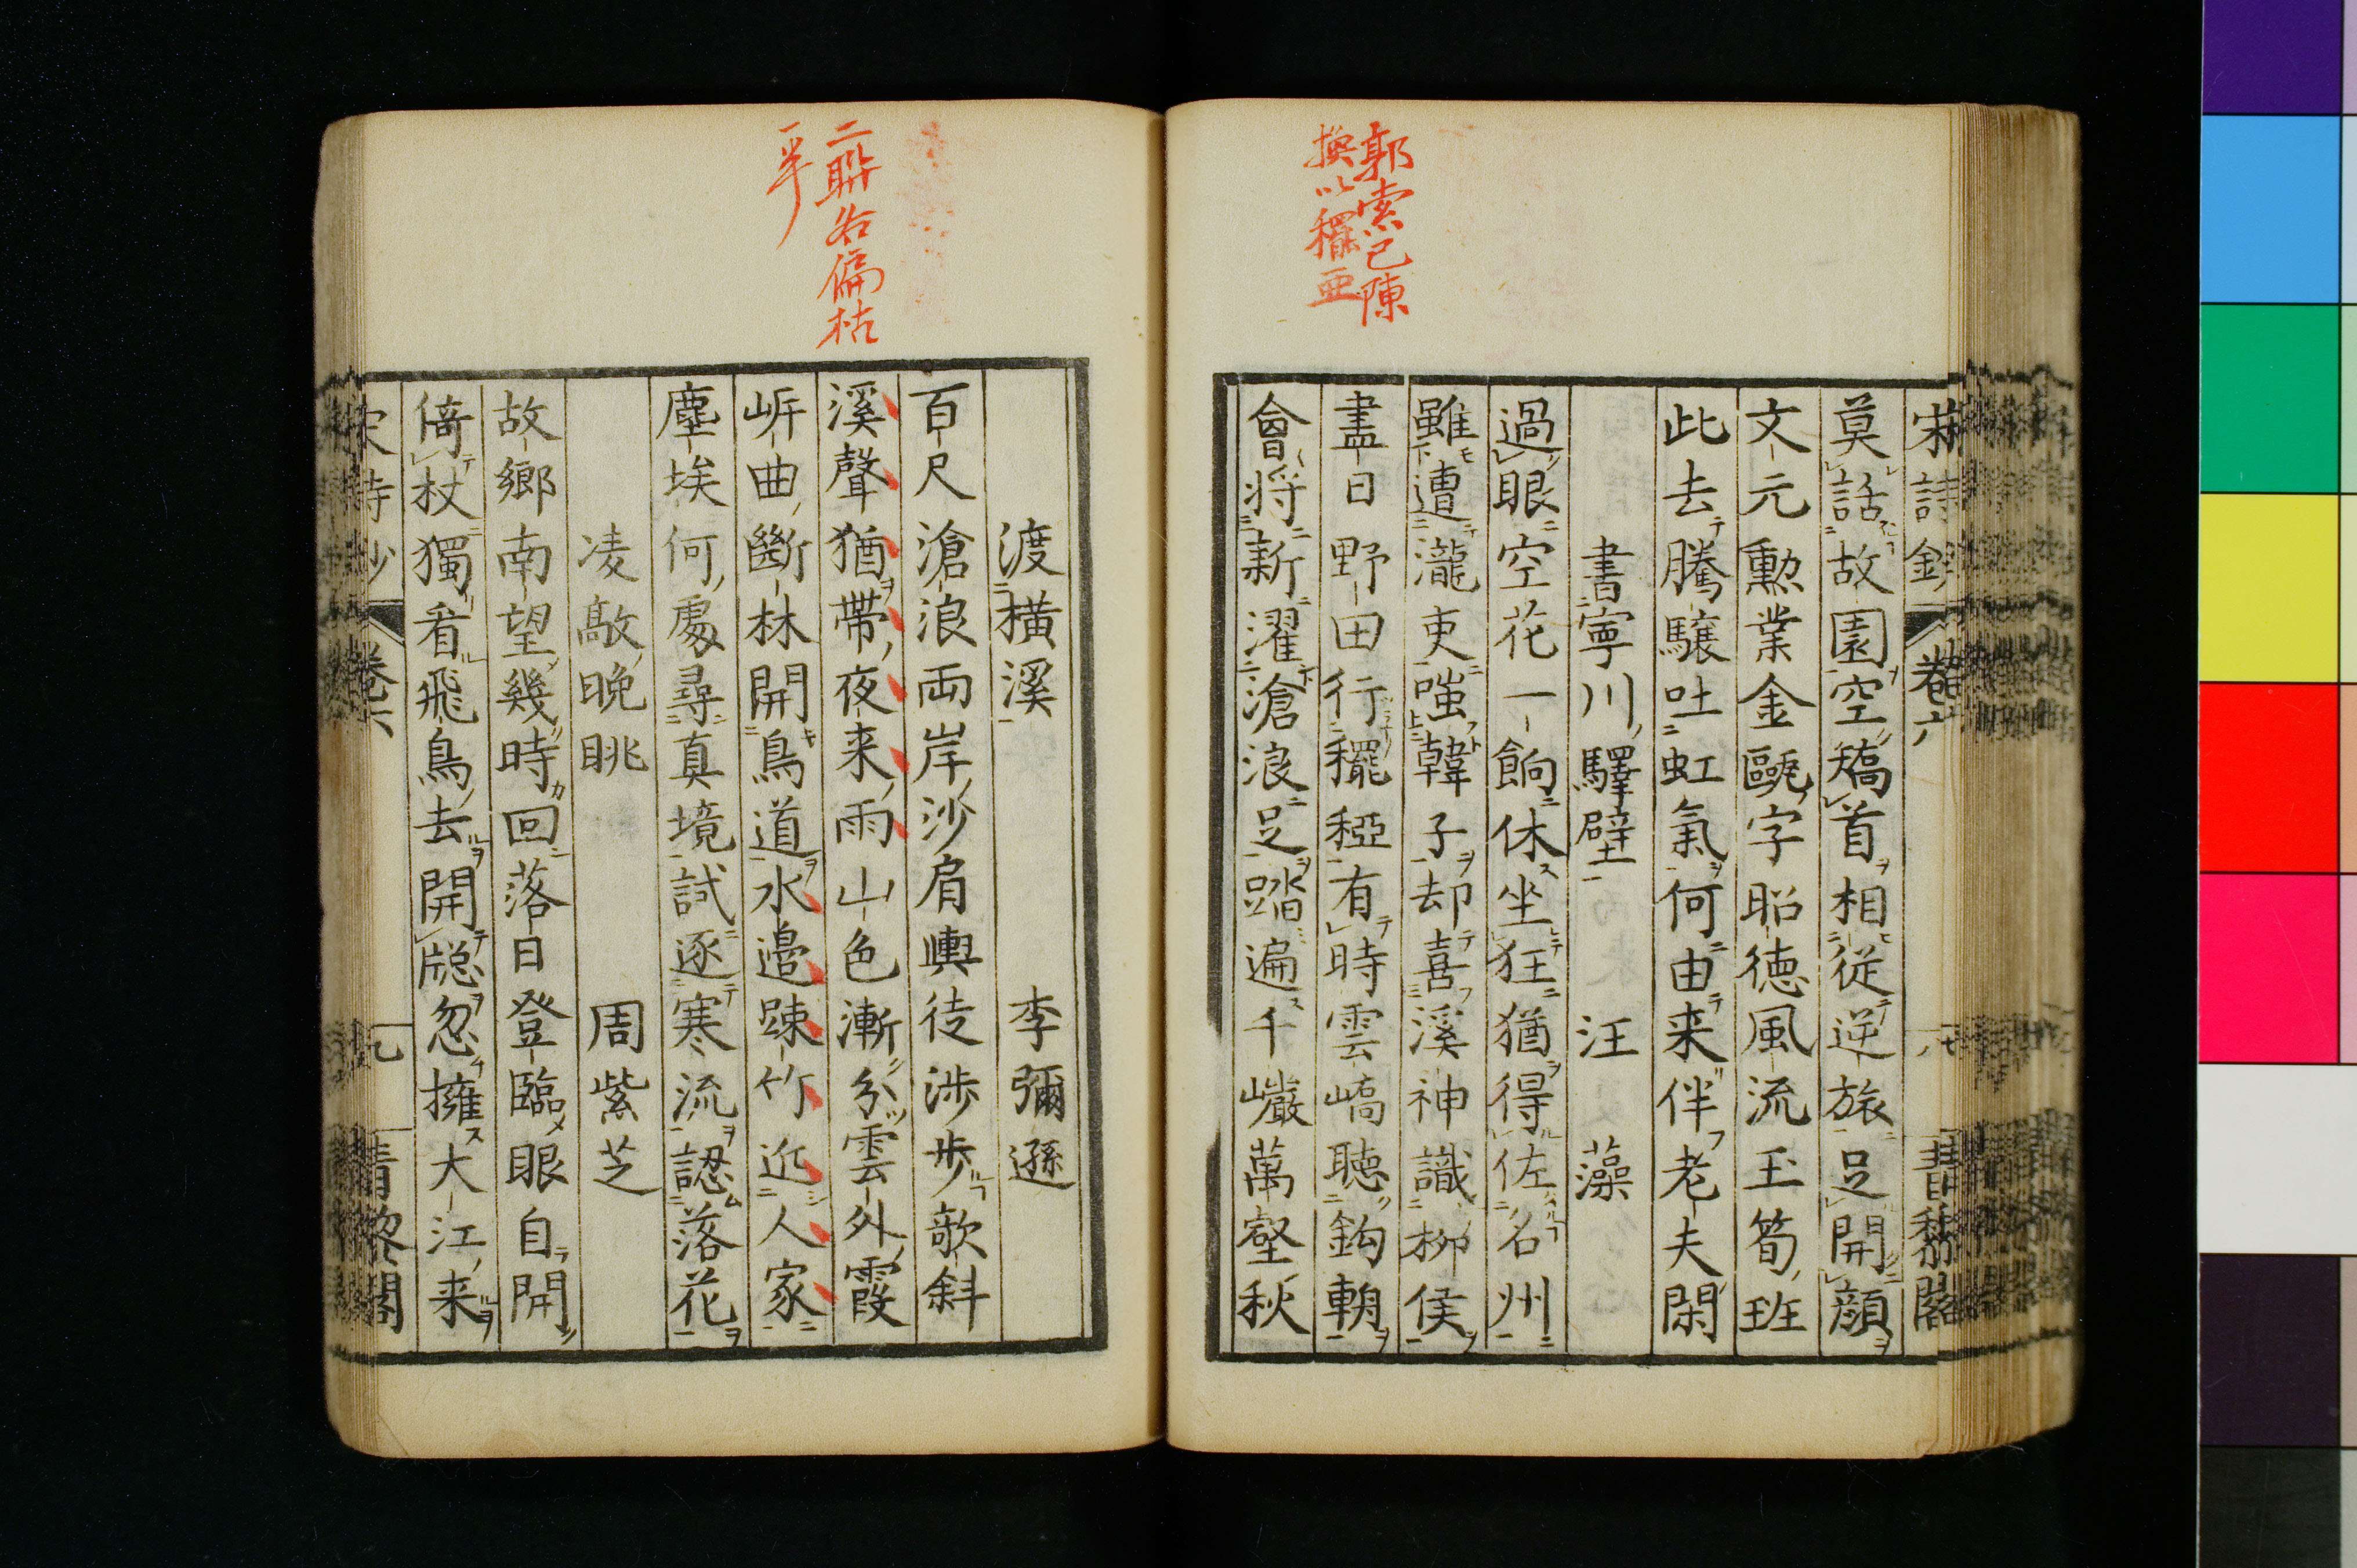 郭索已陳
換以䆉亜
莫話故園空矯首相從逆旅足開顔
文元勲業金甌字昭徳風流玉筍班
此去騰驤吐虹氣何由来伴老夫閑
書寧川驛壁　汪藻
過眼空花一餉休坐狂猶得佐名州
雖遭瀧吏嗤韓子却喜溪神識柳侯
盡日野田行䆉稏有時雲嶠聴鈎輈
會将新濯滄浪足踏遍千巌萬壑秋
二聨各偏枯
一半
渡横溪　李彌遜
百尺滄浪両岸沙肩輿徒渉歩欹斜
溪聲猶帶夜来雨山色漸分雲外霞
岍曲斷林開鳥道水邉踈竹近人家
塵埃何處尋真境試逐寒流認落花
凌敲晩眺　周紫芝
故鄉南望幾時回落日登臨眼自開
倚杖獨看飛鳥去開牕忽擁大江来
宋詩鈔　卷六　九　青黎閣